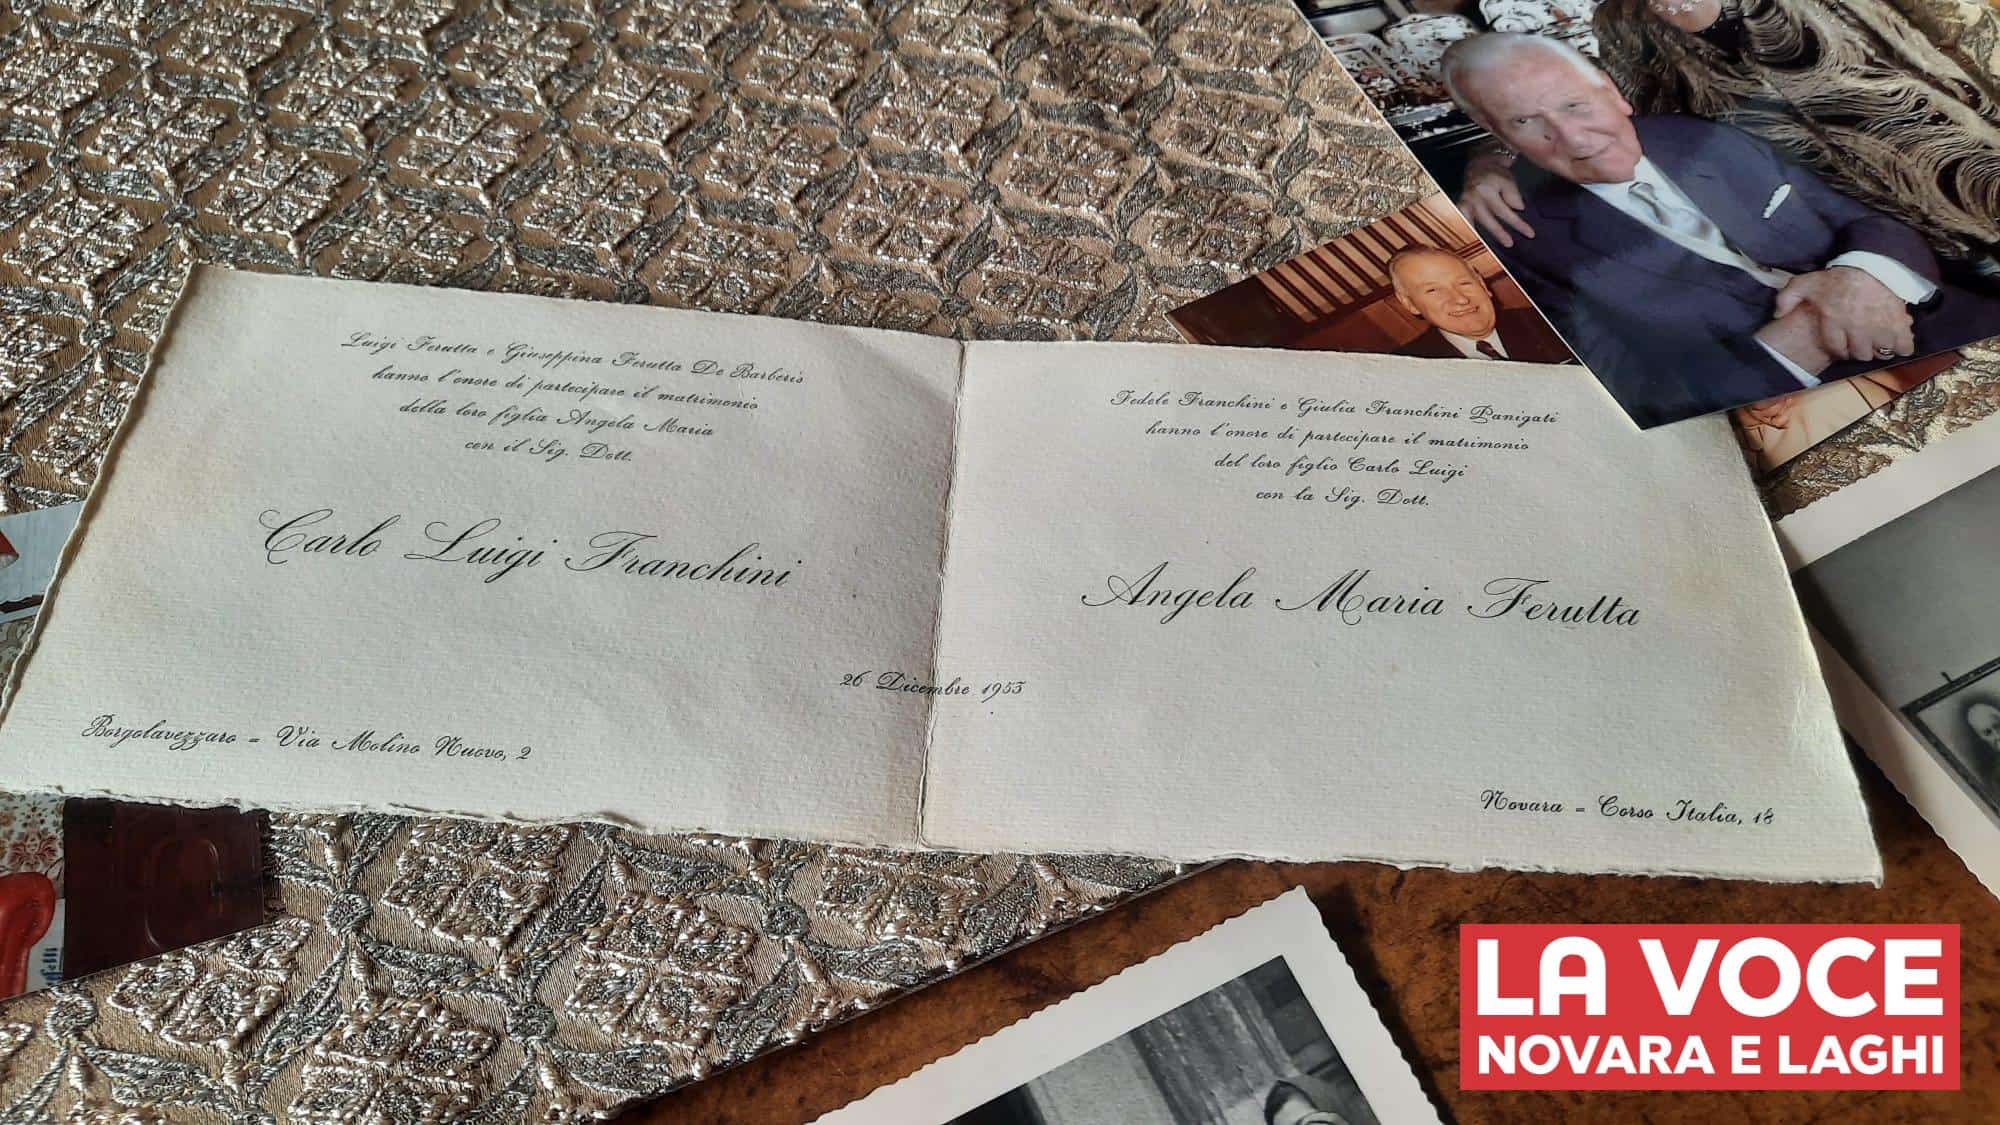 Luigi Ferutta e Giuseppina Ferutta De Barberis
hanno l'onore di partecipare il matrimonio
della loro figlia Angela Maria
con il Sig. Dott.
Carlo Luigi Franchini
Borgolavezzaro = Via Molino Nuovo, 2
Fedele Franchini e Giulia Franchini Panigati
hanno l'onore di partecipare il matrimonio
del loro figlio Carlo Luigi
con la Sig. Dott.
Angela Maria Ferutta
26 Dicembre 1953
Novara = Corso Italia, 18
LA VOCE
NOVARA E LAGHI